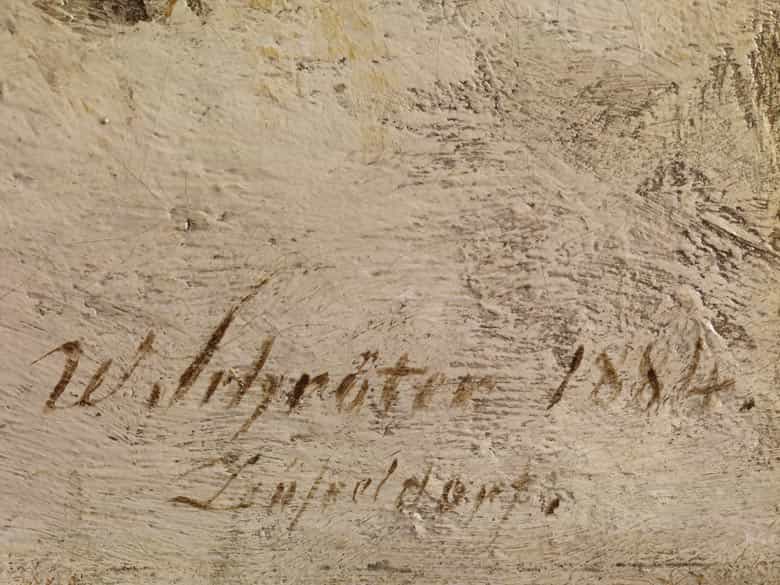 W. Schröter 1884.
Düsseldorf.